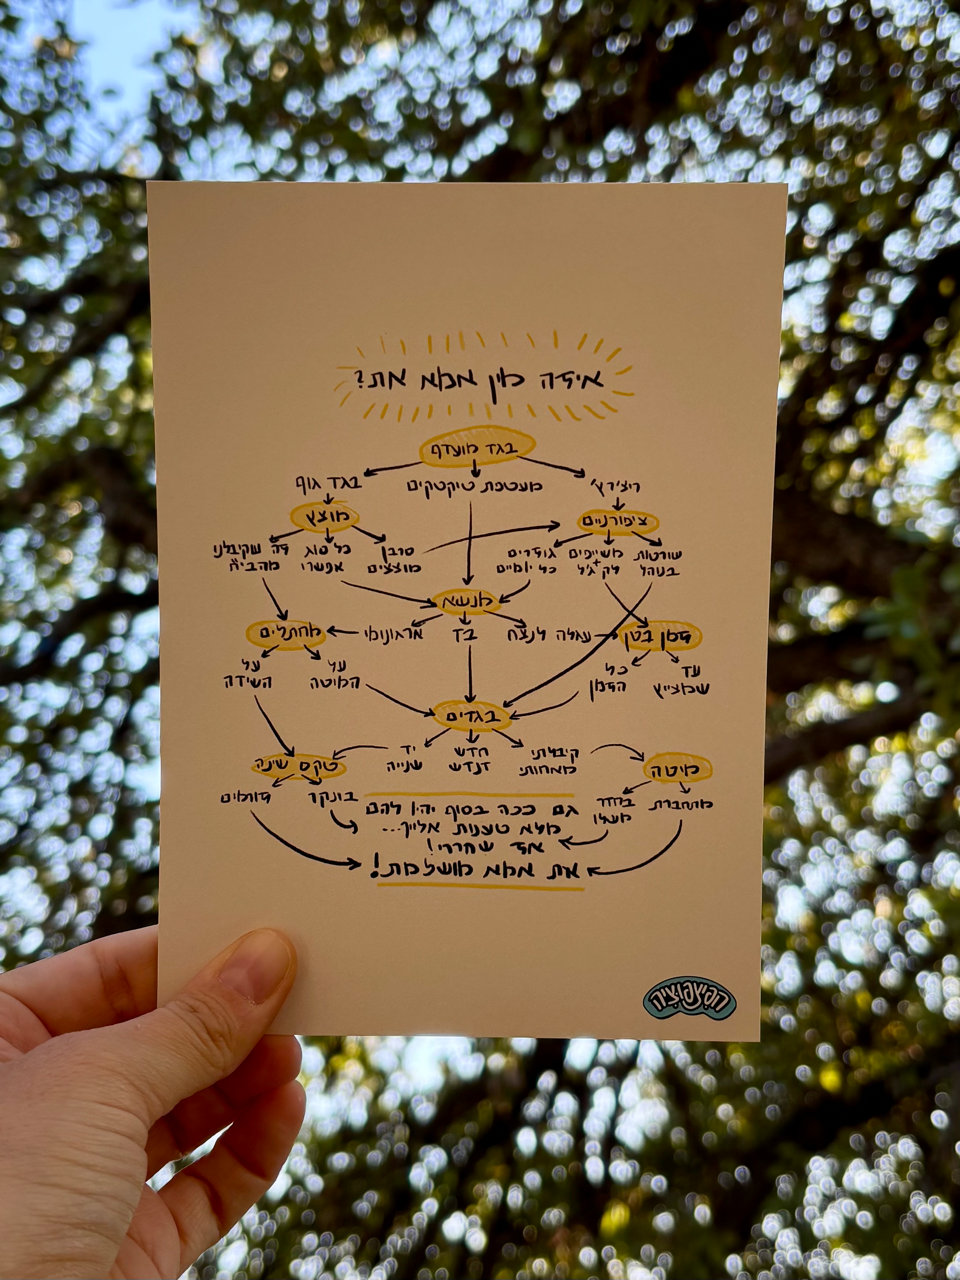 איזה מין אמא את?
בגד מועדף
ריצ'רץ'
מעטפת טיקטקים
בגד גוף
ציפורניים
מוצץ
שורטות בנוהל
משייפים + לק ג'ל
גוזרים כל יומיים
סרבן מוצצים
כל סוג אפשרי
זה שקיבלנו מהבי"ח
מנשא
זמן בטן
עגלה לנצח
בד
ארגונומי
מחתלים
עד שמציץ
כל הזמן
על המיטה
על השידה
בגדים
קיבלתי מאחותי
חדש דנדש
יד שנייה
מיטה
טקס שינה
מתחברת
בחדר מעלי
בונקר
זורמים
גם ככה בסוף יהיו להם
מלא טענות אלייך...
אז שחררי!
את אמא מושלמת!
הפיצפוציה